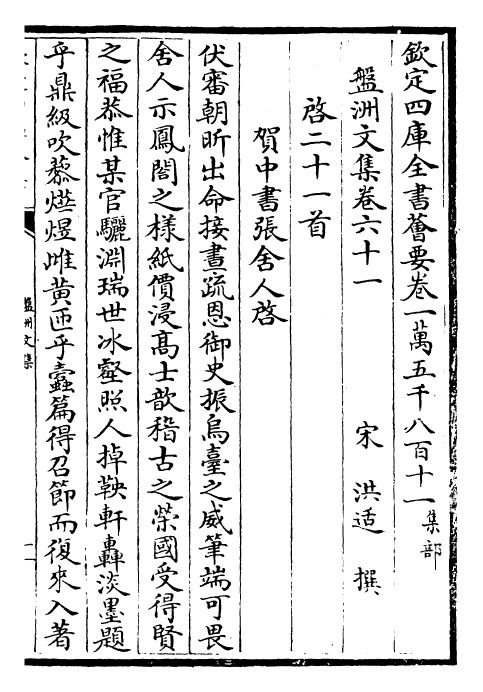 欽定四庫全書薈要卷一萬五千八百十一 集部
盤洲文集卷六十一 宋 洪适 撰
啓二十一首
賀中書張舍人啓
伏審朝昕出命接晝疏恩御史振烏臺之威筆端可畏
舍人示鳳閣之様紙價浸髙士歆稽古之榮國受得賢
之福恭惟某官驪淵瑞世冰壑照人掉鞅軒轟淡墨題
乎鼎級吹藜𤒠煜雌黄匝乎蠧篇得召節而復來入著
盤洲文集